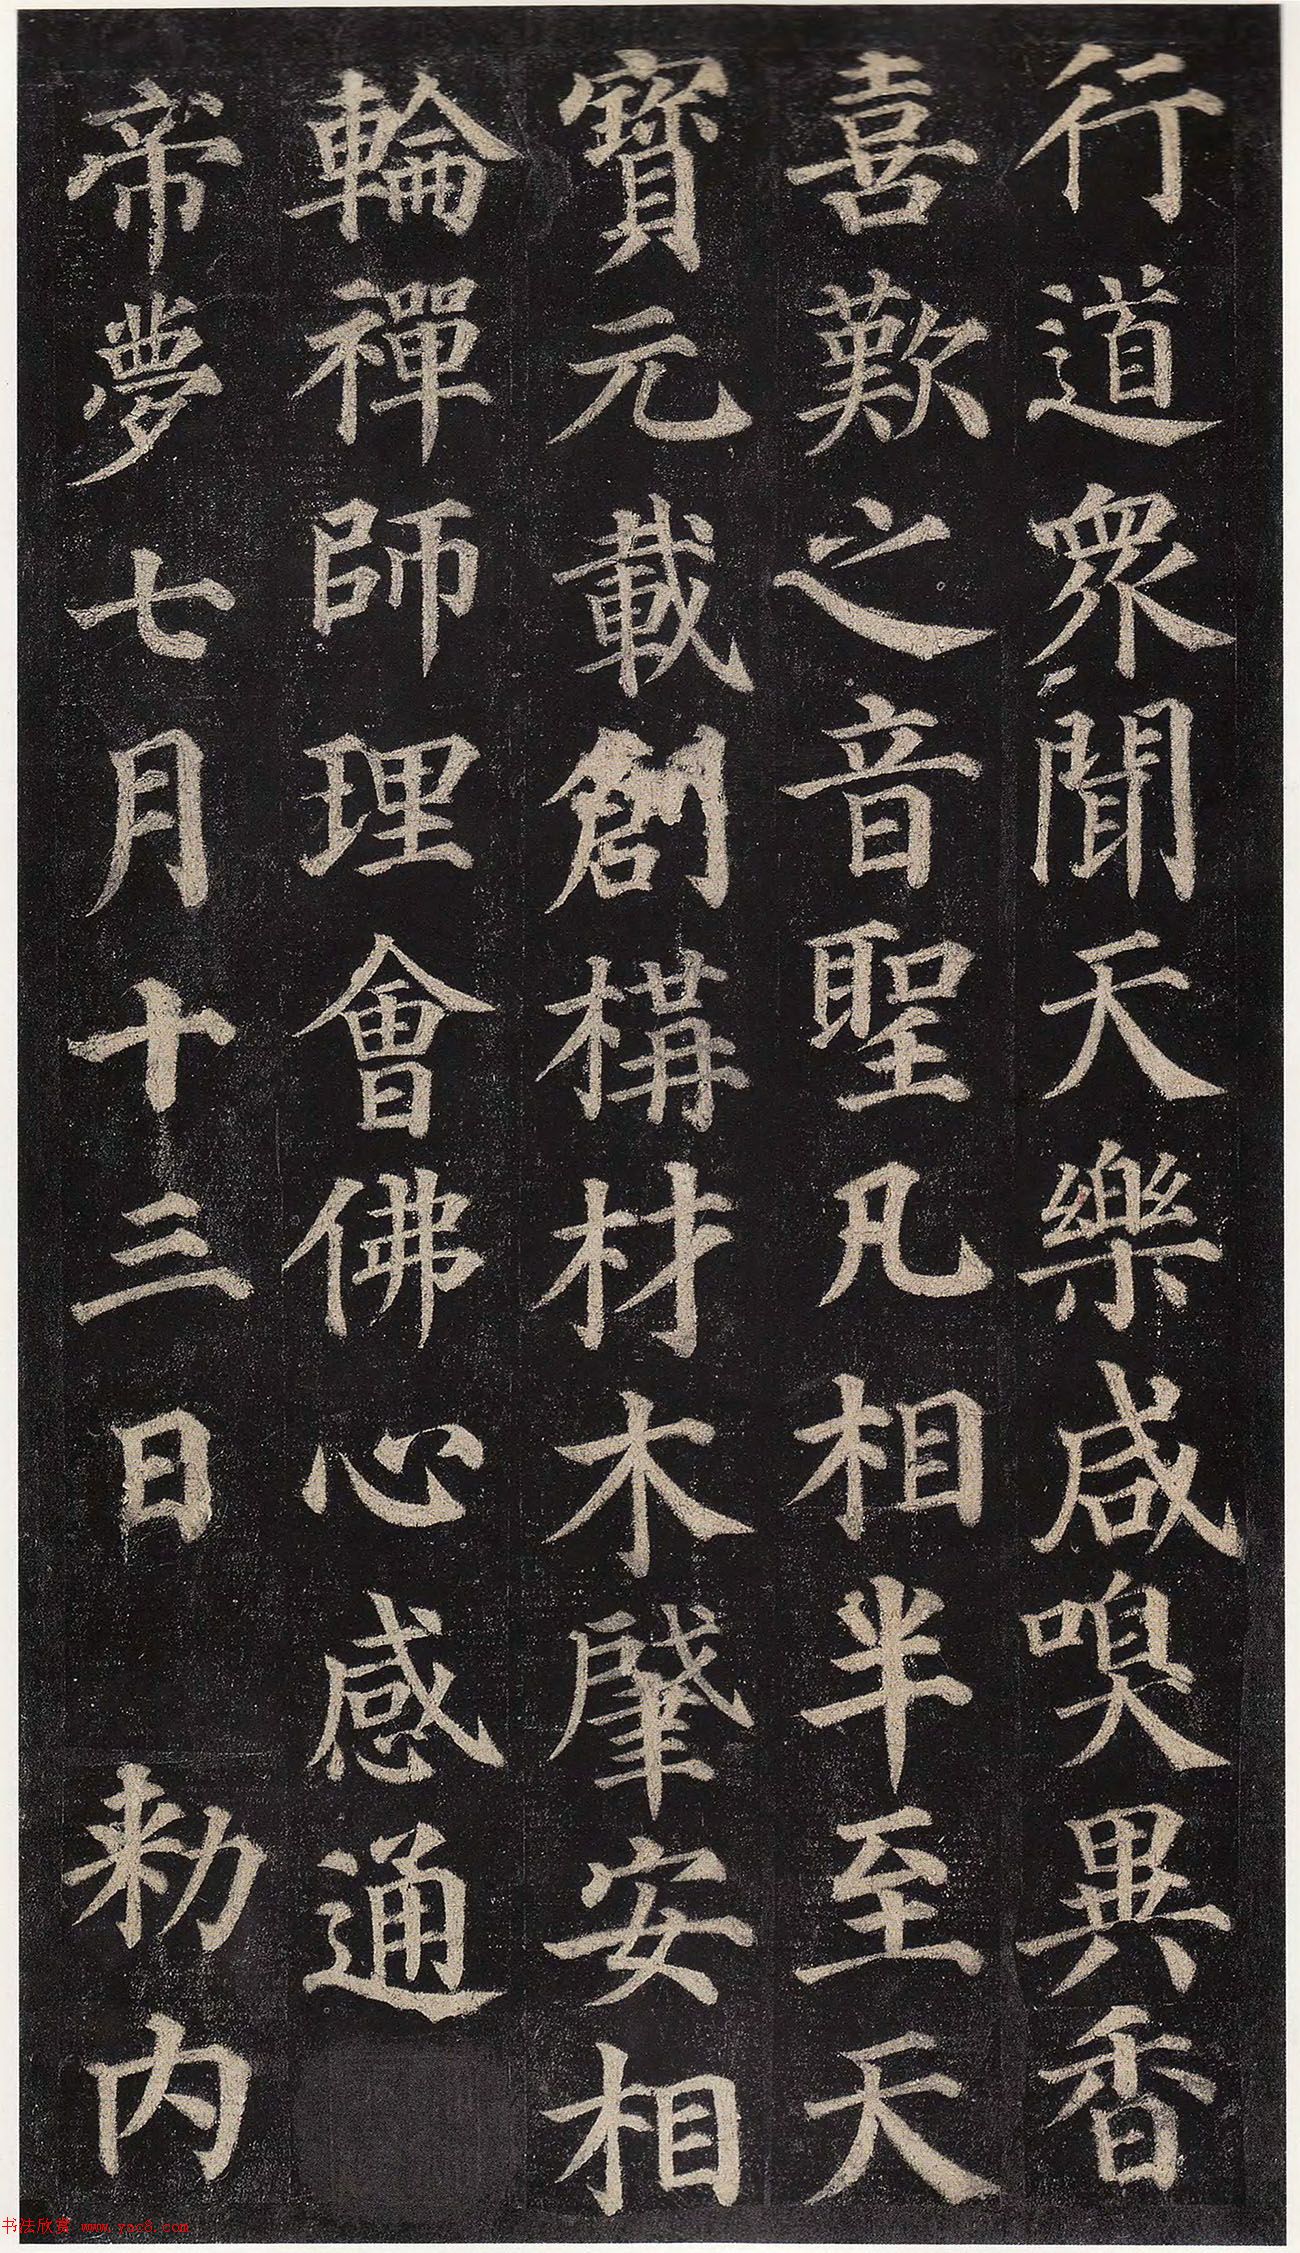 行道衆聞天樂咸嗅異香
喜歎之音聖凡相半至天
寶元載創構材木肇安相
輪禪師理會佛心感通
帝夢七月十三日 勑内
书法欣赏 www.yac8.com